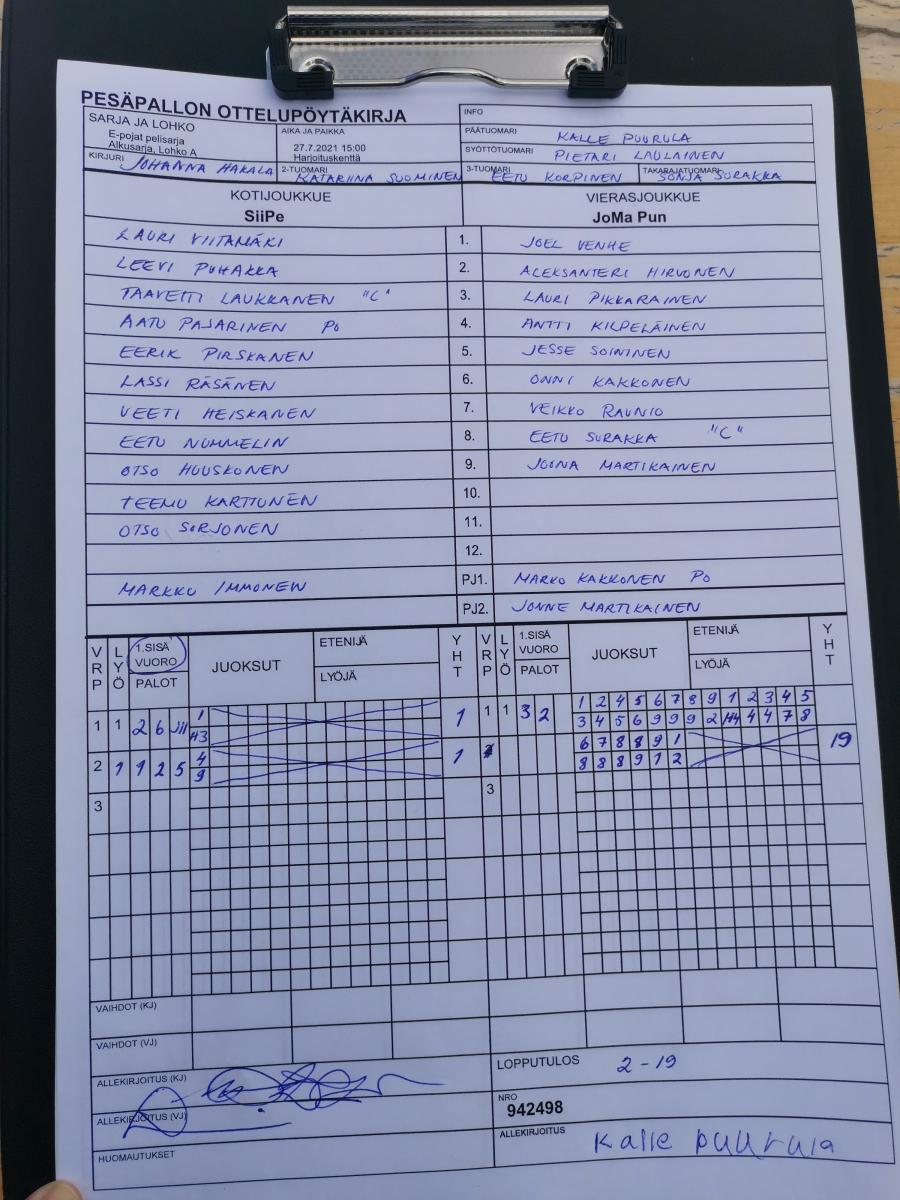 PESÄPALLON OTTELUPÖYTÄKIRJA
SARJA JA LOHKO
E-pojat pelisarja
Alkusarja, Lohko A
AIKA JA PAIKKA
27.7.2021 15:00
Harjoituskenttä
INFO
PÄÄTUOMARI KALLE PUURULA
SYÖTTÖTUOMARI PIETARI LAULAINEN
KIRJURI JOHANNA HAKALA 2-TUOMARI KATARIINA SUOMINEN 3-TUOMARI EETU KORPINEN TAKARAJATUOMARI SONJA SURAKKA
KOTIJOUKKUE VIERASJOUKKUE
SiiPe JoMa Pun
LAURI VIITAMÄKI 1. JOEL VENHE
LEEVI PUHAKKA 2. ALEKSANTERI HIRVONEN
TAAVETTI LAUKKANEN "C" 3. LAURI PIKKARAINEN
AATU PAJARINEN Po 4. ANTTI KILPELÄINEN
EERIK PIRSKANEN 5. JESSE SOININEN
LASSI RÄSÄNEN 6. ONNI KAKKONEN
VEETI HEISKANEN 7. VEIKKO RAUNIO
EETU NUMMELIN 8. EETU SURAKKA "C"
OTSO HUUSKONEN 9. JOONA MARTIKAINEN
TEEMU KARTTUNEN 10.
OTSO SORJONEN 11.
12.
MARKKU IMMONEN PJ1. MARKO KAKKONEN Po
PJ2. JONNE MARTIKAINEN
VRP LYÖ 1.SISÄ VUORO PALOT JUOKSUT ETENIJÄ LYÖJÄ YHT VRP LYÖ 1.SISÄ VUORO PALOT JUOKSUT ETENIJÄ LYÖJÄ YHT
1 1 2 6 1 1 1 1 3 2 1 2 4 5 6 7 8 9 1 2 3 4 5
H3 3 4 5 6 9 9 9 2 H4 4 4 7 8
2 1 1 2 5 4 1 6 7 8 8 9 1 19
9 8 8 8 9 1 2
3 3
VAIHDOT (KJ)
VAIHDOT (VJ)
ALLEKIRJOITUS (KJ) LOPPUTULOS 2-19
ALLEKIRJOITUS (VJ) NRO
942498
HUOMAUTUKSET ALLEKIRJOITUS Kalle puurula